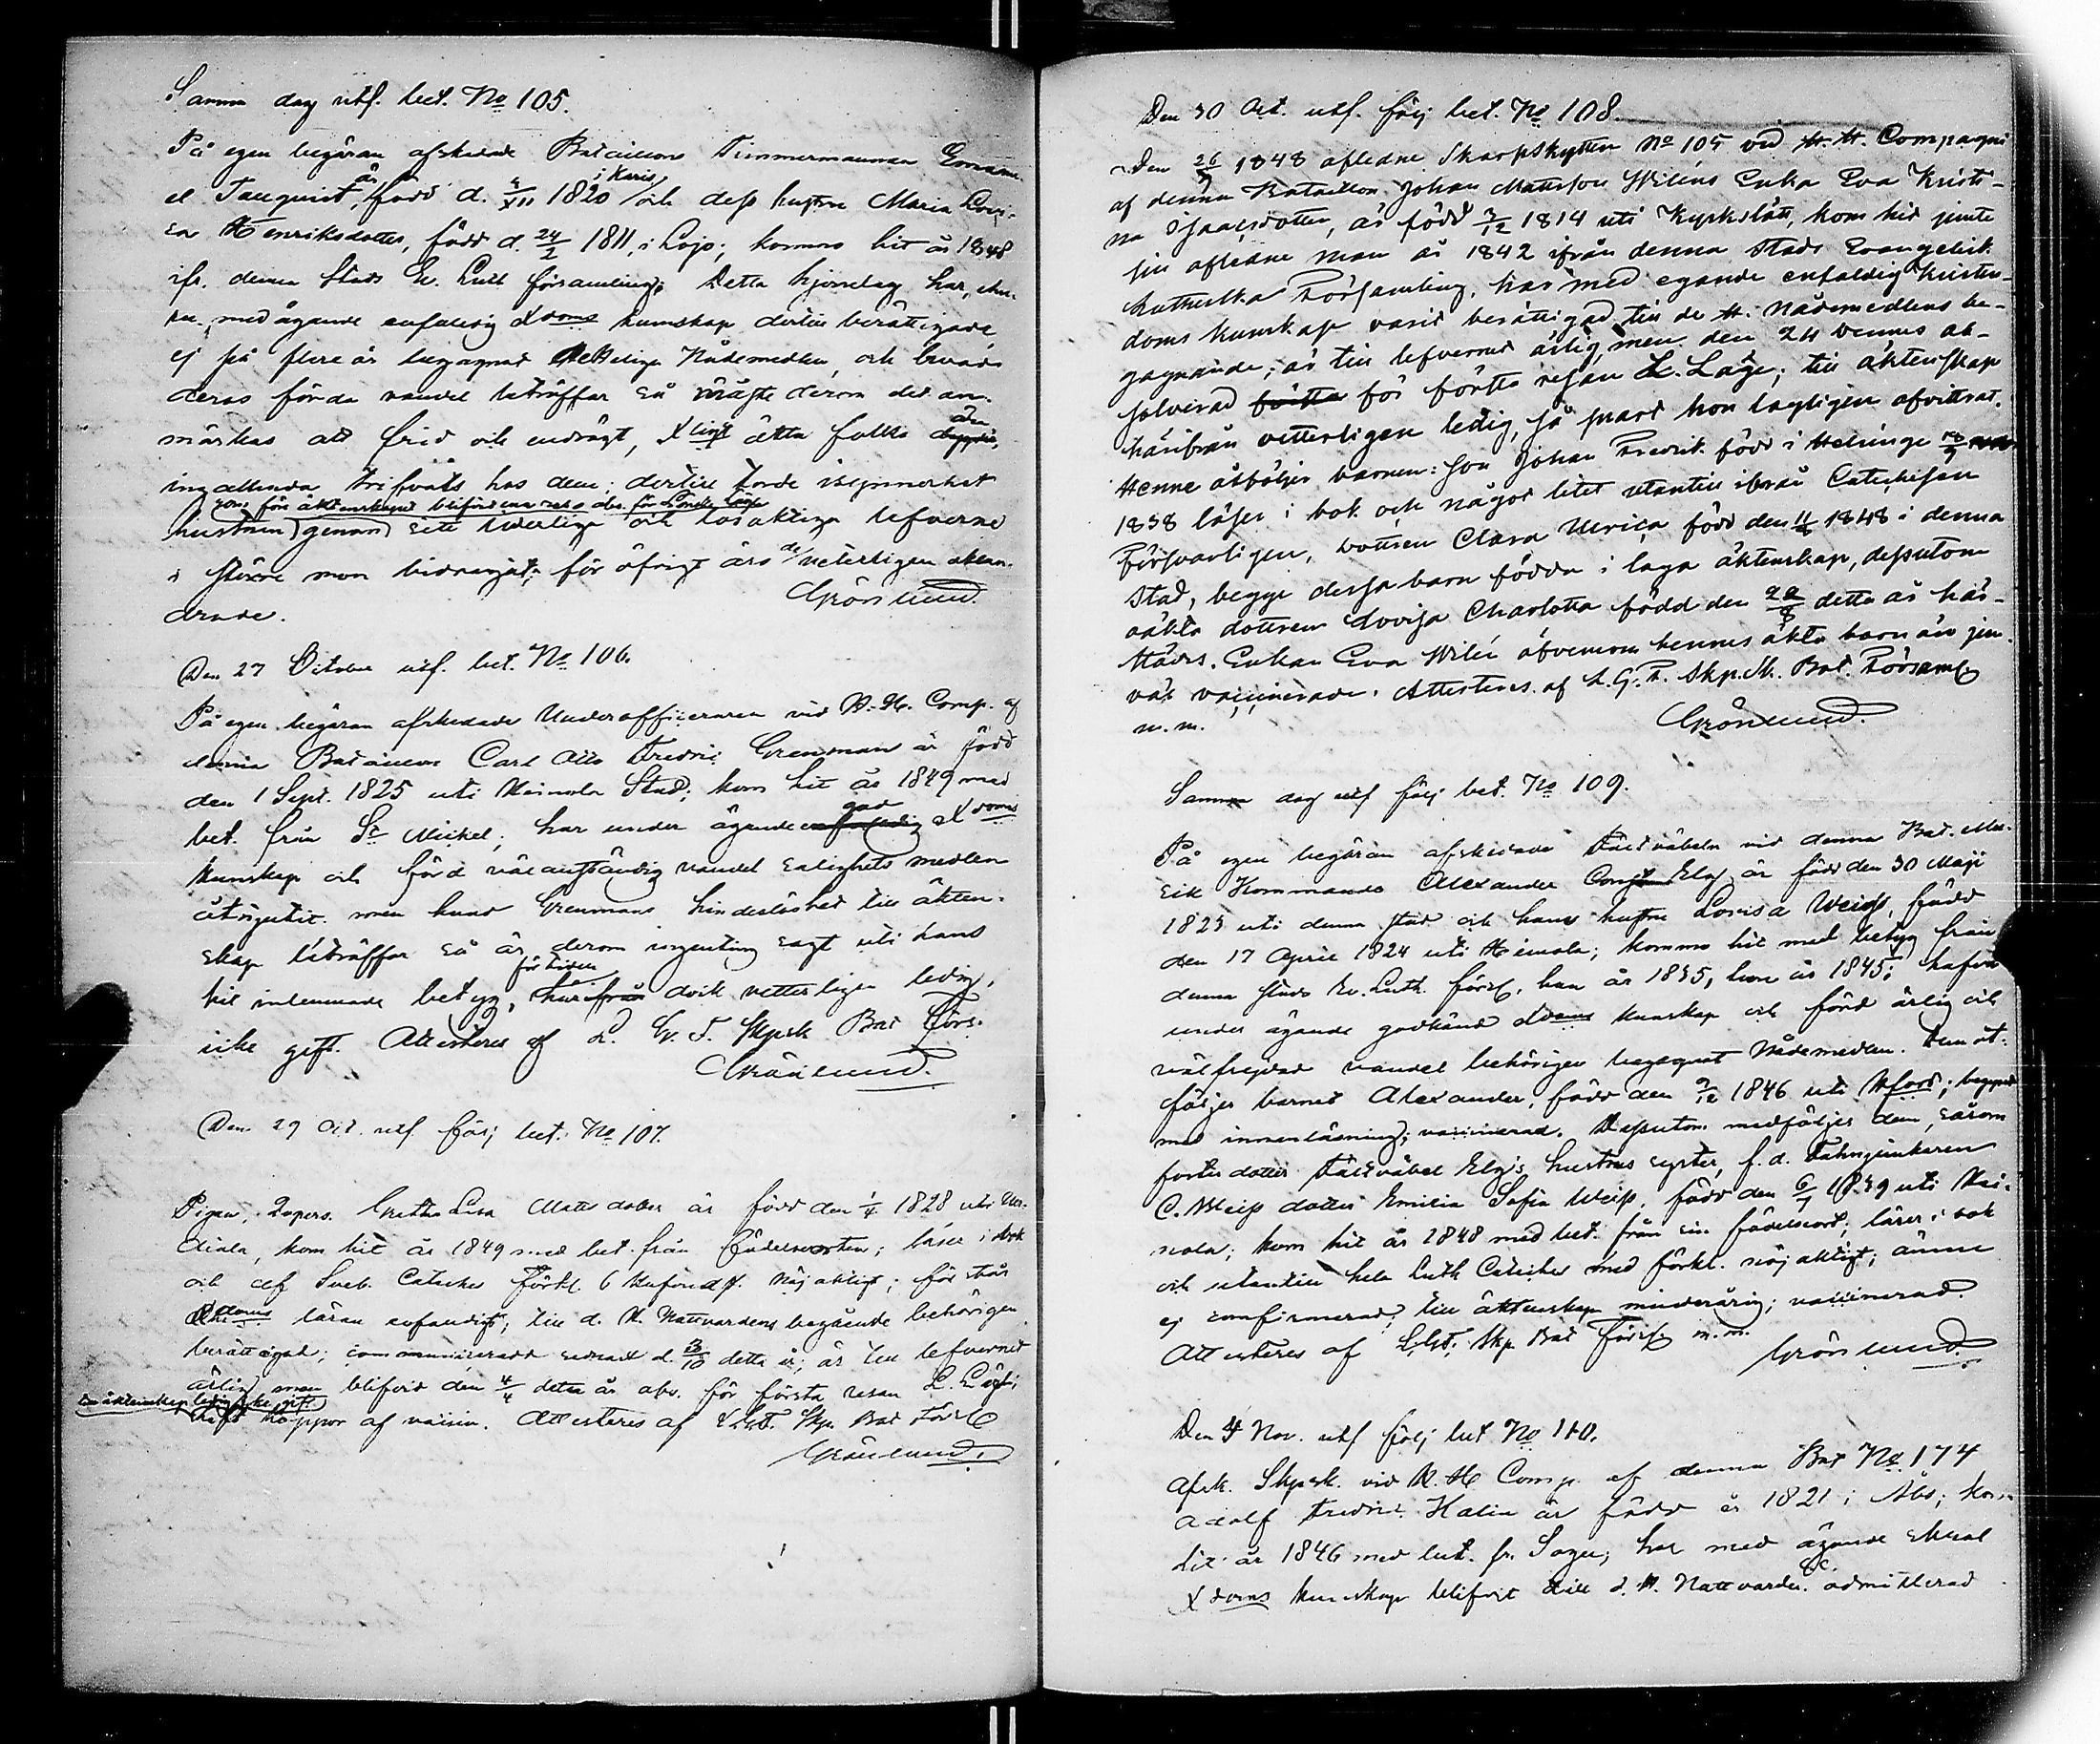 Samma dag utf. bet. No 105.
På egen begäran afskedade Bataillons Timmermannen Emanu-
el Tanquist, är född d. 4/XII 1820 i Karis och dess hustru Maria Lovi-
sa Henriksdotter, född d. 24/2 1811, i Lojo; kommo hit år 1848
ifr. denna Stads Ev. Luth församling; Detta hjonelag har, ehu-
ru, med ägande enfaldig Xdoms kunskap dertill berättigade,
ej på flere år begagnat Nådemedlen, och hvad
deras förda vandel beträffar så måste derom det an-
märkas att frid och endrägt, Xligt ätta folks
ingalunda trifvats hos dem; dertill torde isynnerhet
som före äktenskapet blifvit abs. för Lönsk Läge
hustrun genom sitt liderliga och lösaktiga lefverne
i större mon bidragit; för öfrigt äro de veterligen oklan-
drade. Grönlund.
Den 27 October utf. bet. No 106.
På egen begäran afskedade Underofficeraren vid N. H. Comp. af
denna Bataillon Carl Otto Fredric Grenman är född
den 1 Sept. 1825 uti Heinola Stad; kom hit år 1849 med
bet. från St Michel; har under ägande enfaldig god Xdoms
kunskap och förd välanständig vandel salighets medlen
åtnjutit. men hvad Grenmans hinderlöshet till äkten-
skap beträffar så är derom ingenting sagt uti hans
hit inlemnade betyg, härifrån för tiden dock vetterligen ledig,
icke gift. Attesteras af L. G. F. Skpsk Bat Förs.
Grönlund.
Den 29 Oct. utf följ bet. No 107.
Pigan, Greta Lisa Mattsdotter är född den 1/4 1828 uti
kom hit år 1849 med bet. från födelseorten; läser i bok
och af Sveb. Catches Förkl. 6 Hufvudst. nöjaktigt; förstår
Xdoms läran enfaldigt; till d. H. Nattvardens begående behörigen
berättigad; communicerade senast d. 3/10 detta år; är till lefvernet
ärlig men blifvit den 4/4 detta år abs. för första resan L. Läge;
till äktenskap ledig icke gift
haft koppor af vaccin. Attesteras af Skp. Bat Förs
Grönlund.
Den 30 Oct. utf. följ bet. No 108.
Den 26/7 1848 afledne Skarpskytten No 105 vid H. H. Compagni
af denna Bataillon Johan Mattsson Wiléns Enka Eva Kristi-
na Isaacsdotter, är född 3/12 1814 uti Kyrkslätt, kom hid jemte
sin aflidne man år 1842 ifrån denna Stads Evangelisk
Lutherska Församling, har med egande enfaldig Kristen-
doms kunskap varit berättigad till de H. nådemedlens be-
gagnande; är till lefvernet ärlig, men den 24 dennes ab-
solverad för första resan L. Läge; till äktenskap
härifrån vetterligen ledig, så snart hon lagligen afvittrat.
Henne åtföljer barnen: son Johan Fredrik född i Helsinge
1838 läser i bok och något litet utantill ifrån Catechesen
försvarligen, dottren Clara Ulrica född den 11/8 1848 i denna
Stad, begge dessa barn födda i laga äktenskap, dessutom
oäkta dottren Lovisa Charlotta född den 22/8 detta år här-
städes. Enkan Eva Wilén äfvensom hennes äkta barn äro jem-
väl vaccinerade. Attesteras af L. G. F. Skp. M. Bat. Församl
m. m. Grönlund.
Samma dag utf följ bet. No 109.
På egen begäran afskedade Fältväbeln vid denna Bat. Mu-
sik Kommando Alexander Elg är född den 30 Maji
1823 uti denna stad och hans hustru Lovisa Weiss, född
den 17 April 1824 uti Heinola; kommo hit med betyg från
denna stads Ev. Luth. förs., han år 1835, hon år 1845; hafva
under ägande godkänd Xdoms kunskap och förd ärlig och
välfrejdad vandel behörigen begagnat Nådemedlen. Dem åt-
följer barnet Alexander, född den 9/12 1846 uti Hfors; begynt
med innanläsning; vaccinerad. Dessutom medföljer dem, såsom
fosterdotter Fältväbel Elgs hustrus syster, f. d. Fahnjunkaren
C. Weiss dotter Emilia Sofia Weiss, född den 6/1 1839 uti Hei-
nola; kom hit år 1848 med bet. från sin födelseort; läser i bok
och utantill hela Luth Catches med förkl. nöjaktigt; ännu
ej confirmerad; till äktenskap minderårig; vaccinerad.
Attesteras af L.G.F. Skp Bat Förs m. m.
Grönlund.
Den 4 Nov. utf följ bet No 110.
Afsk. Skpsk. vid N. H Comp. af denna Bat No 174
Adolf Fredric Halin är född år 1821 i Åbo; kom
hit år 1846 med bet. fr. Sagu; har med ägande
Xdoms kunskap blifvit till d. H. Nattvarden &c. admitterad